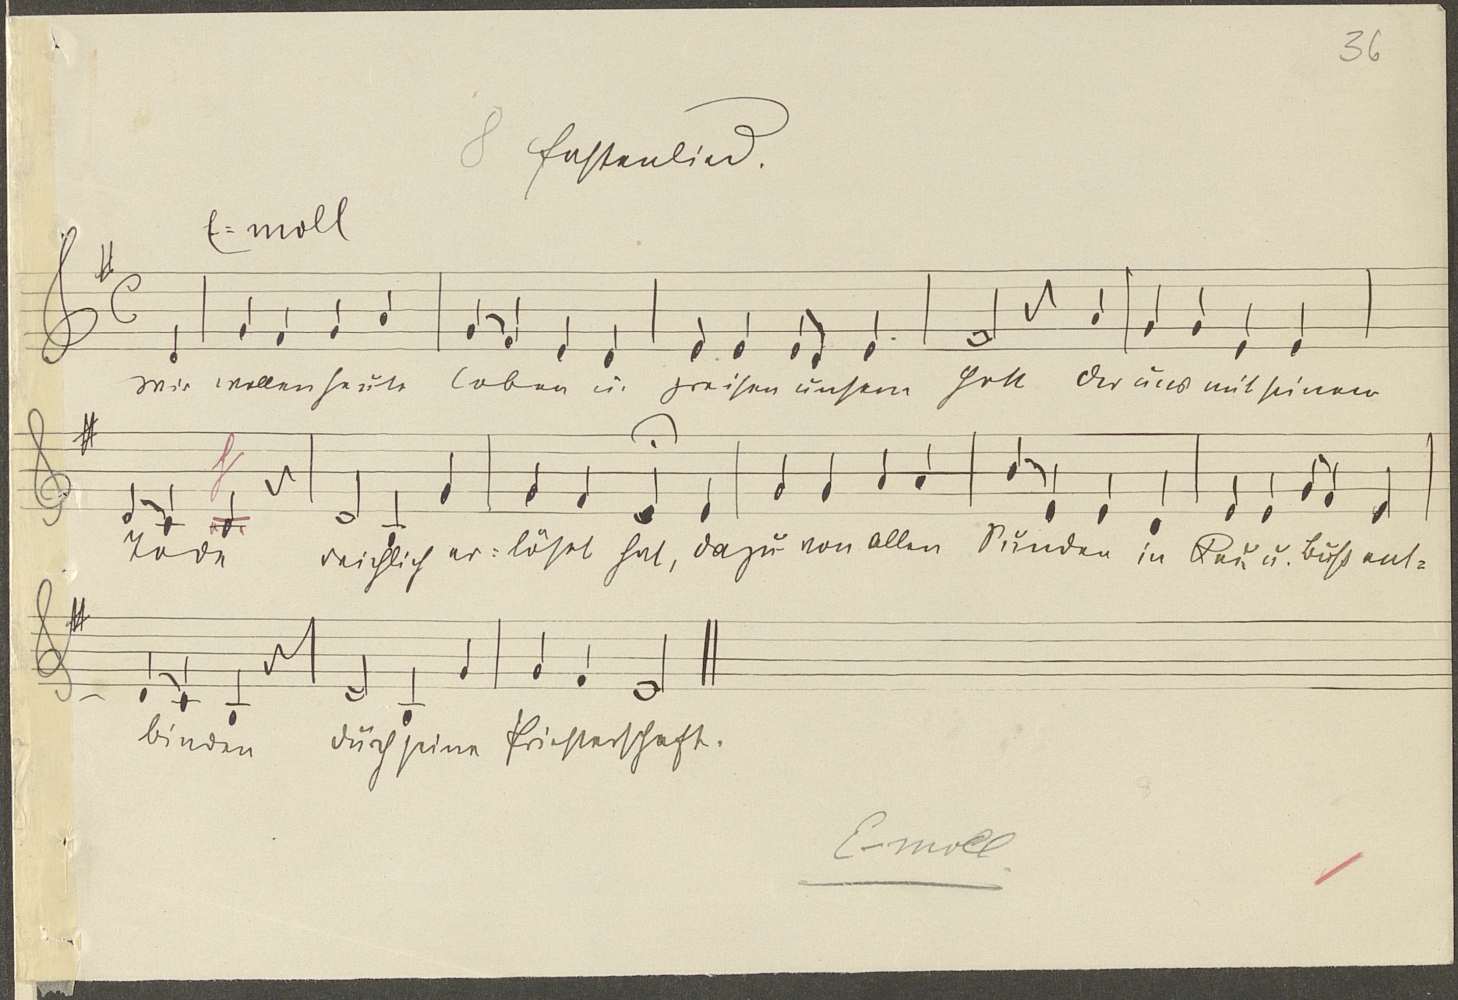 36
8 Fastenlied.
E=moll
Wir wollen heute loben u. preisen unsern Gott der uns mit seinem
Tode reichlich er=löset hat, dazu von allen Sünden in Reu u. Buß ent=
binden durch seine Priesterschaft.
E-moll.